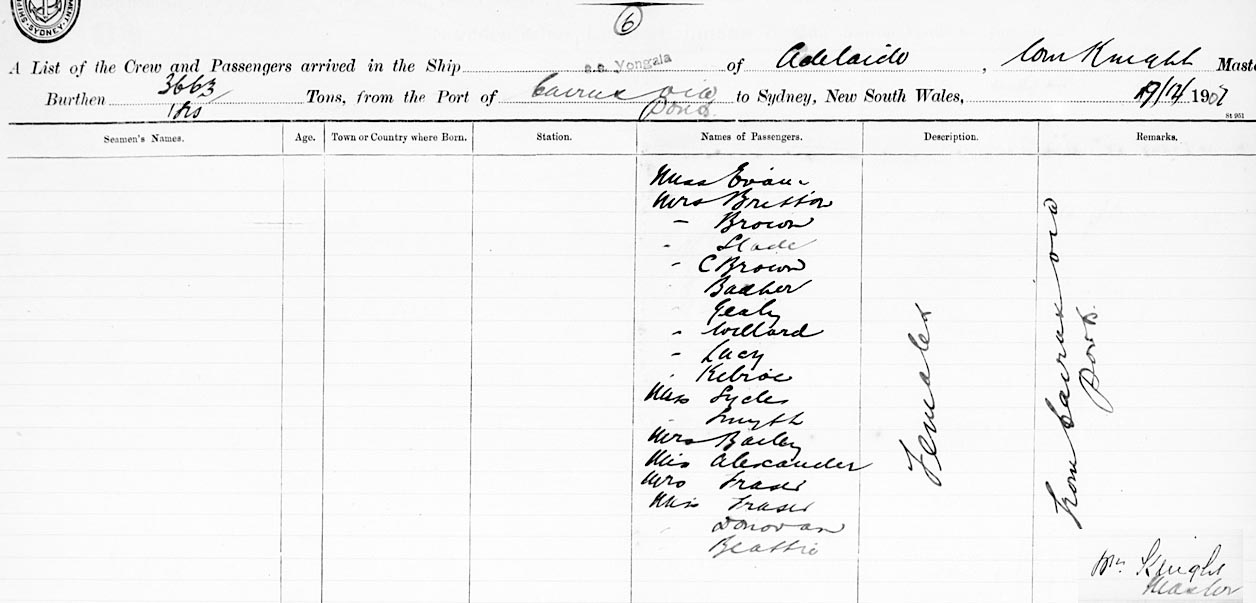 6
SYDNEY
A List of the Crew and Passengers arrived in the Ship s.s. Yongala of Adelaide, Wm Knight Maste
Burthen 3663 Tons, from the Port of Cairns via Ports to Sydney, New South Wales, 1907
St 951
Seamen's Names. Age. Town or Country where Born. Station. Names of Passengers. Description. Remarks.
Miss Evans
Mrs Britton
– Brown
- Slade
- C Brown
Gealy
- Willard
- Lacy
Miss
Smyth
Mrs Bailey
Miss Alexander
Mrs Fraser
Miss Fraser
Donovan
Beattie
Females
From Cairns via Ports.
Wm Knight
Master